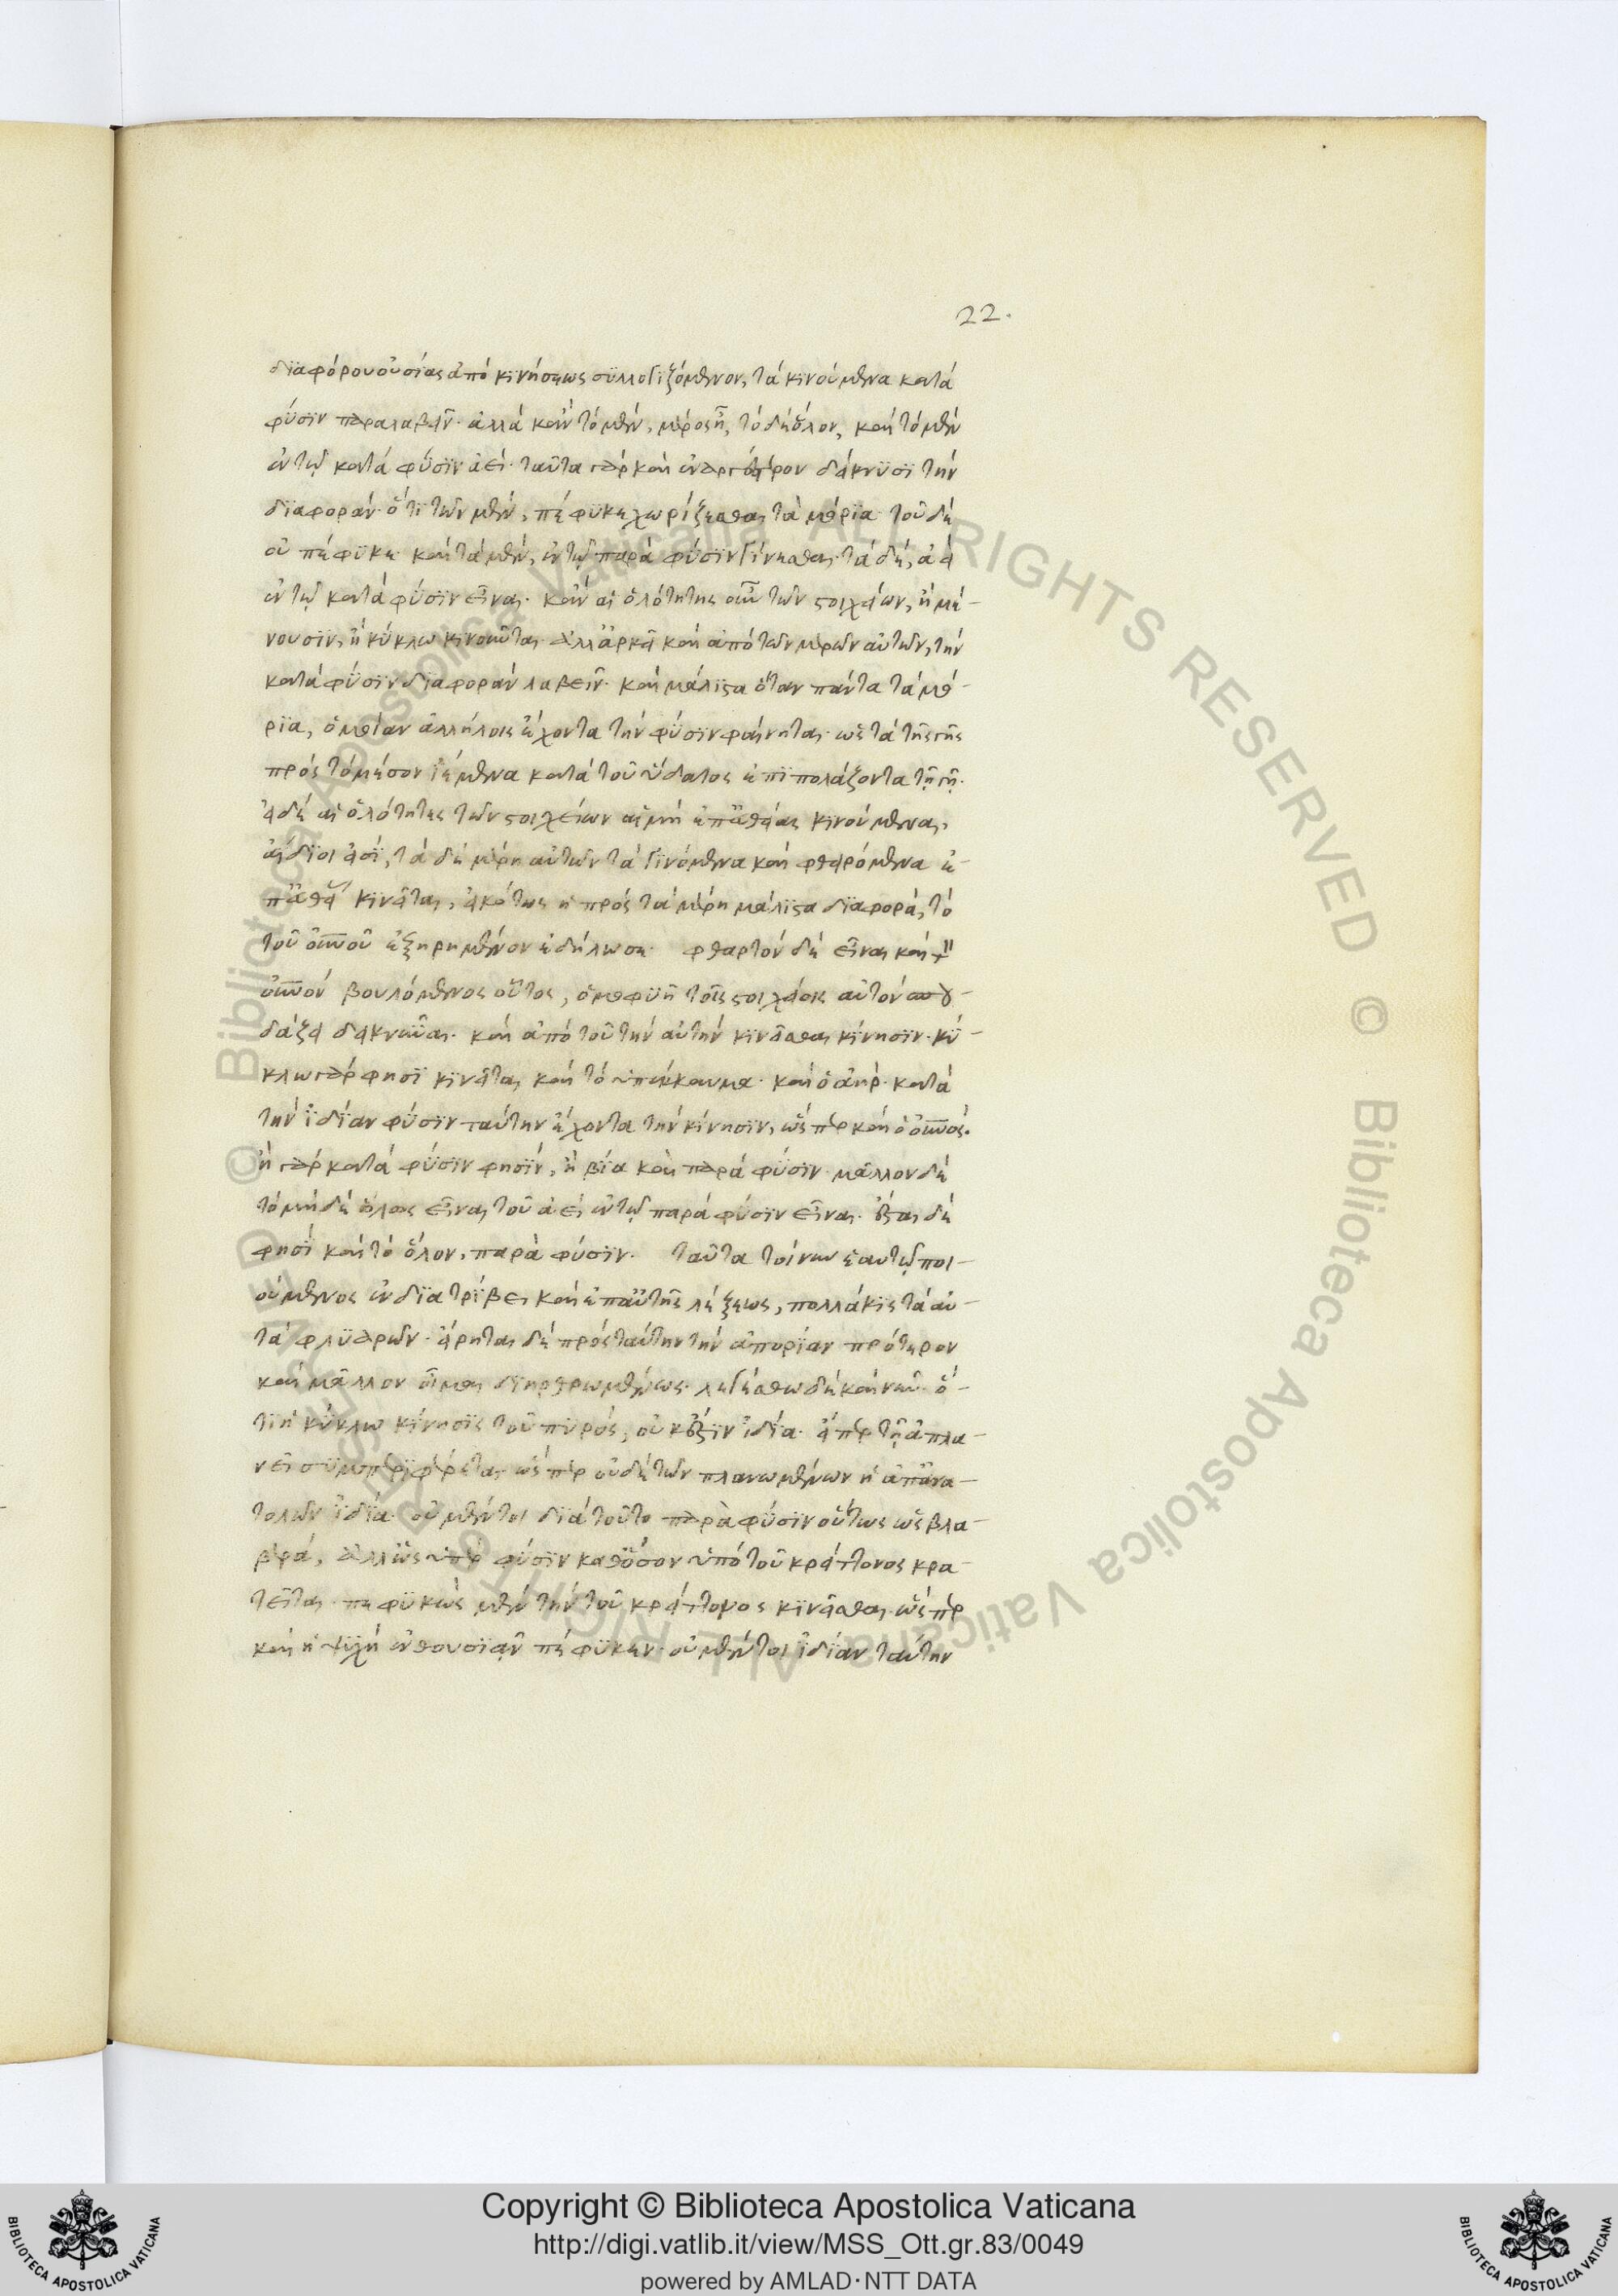 22.
διαφόρου οὐσίας ἀπὸ κινήσεως συλλογιζόμενον, τὰ κινούμενα κατὰ
φύσιν παραλαβεῖν· ἀλλὰ κἂν τὸ μὲν, μέρος ᾖ, τὸ δὲ ὅλον, καὶ τὸ μὲν
ἐν τῷ κατὰ φύσιν ἀεί· ταῦτα γὰρ καὶ ἐναργέστερον δείκνυσι τὴν
διαφοράν· ὅτι τῶν μὲν, πέφυκε χωρίζεσθαι τὰ μόρια· τοῦ δὲ
οὐ πέφυκε· καὶ τὰ μὲν, ἐν τῷ παρὰ φύσιν γίνεσθαι· τὰ δὲ, ἀεὶ
ἐν τῷ κατὰ φύσιν εἶναι· κἂν αἱ ὁλότητες οὖν τῶν στοιχείων, ἢ μέ-
νουσιν, ἢ κύκλω κινοῦνται· ἀλλ' ἀρκεῖ καὶ ἀπὸ τῶν μερῶν αὐτῶν, τὴν
κατὰ φύσιν διαφορὰν λαβεῖν· καὶ μάλιστα ὅταν πάντα τὰ μό-
ρια, ὁμοίαν ἀλλήλοις ἔχοντα τὴν φύσιν φαίνηται· ὡς τὰ τῆς γῆς
πρὸς τὸ μέσον ἱέμενα κατὰ τοῦ ὕδατος ἐπιπολάζοντα τῇ γῇ·
εἰ δὲ αἱ ὁλότητες τῶν στοιχείων αἱ μὴ ἐπ' εὐθείας κινούμεναι,
ἀΐδιοι εἰσὶ, τὰ δὲ μέρη αὐτῶν τὰ γινόμενα καὶ φθειρόμενα ἐ-
π' εὐθείας κινεῖται, εἰκότως ἡ πρὸς τὰ μέρη μάλιστα διαφορά, τὸ
τοῦ οὐνοῦ ἐξῃρημένον ἐδήλωσε· φθαρτὸν δὲ εἶναι καὶ τὸν
οὐνὸν βουλόμενος οὗτος, ὁμοφυῆ τοῖς στοιχείοις αὐτὸν σπου-
δάζει δεικνύναι· καὶ ἀπὸ τοῦ τὴν αὐτὴν κινεῖσθαι κίνησιν· κύ-
κλω γὰρ φησὶ κινεῖται καὶ τὸ ὑπέκκαυμα· καὶ ὁ ἀὴρ· κατὰ
τὴν ἰδίαν φύσιν ταύτην ἔχοντα τὴν κίνησιν, ὥσπερ καὶ ὁ οὐνός·
ἢ γὰρ κατὰ φύσιν φησὶν, ἢ βία καὶ παρὰ φύσιν· μᾶλλον δὲ
τὸ μηδὲ ὅλως εἶναι τοῦ ἀεὶ ἐν τῷ παρὰ φύσιν εἶναι· ἔσται δὲ
φησὶ καὶ τὸ ὅλον, παρὰ φύσιν· ταῦτα τοίνυν ἑαυτῷ ποι-
ούμενος ἐνδιατρίβει καὶ ἐπ' αὐτῆς λέξεως, πολλάκις τὰ αὐ-
τὰ φλυαρῶν· εἴρηται δὲ πρὸς ταύτην τὴν ἀπορίαν πρότερον
καὶ μᾶλλον οἶμαι διηρθρωμένως· λεγέσθω δὲ καὶ νῦν· ὅ-
τι ἡ κύκλω κίνησις τοῦ πυρός, οὐκ ἔστιν ἰδία· εἴπερ τῇ ἀπλα-
νεῖ συμπεριφέρεται ὥσπερ οὐδὲ τῶν πλανωμένων ἡ ἀπ' ἀνα-
τολῶν ἰδία· οὐ μέντοι διὰ τοῦτο παρὰ φύσιν οὕτως ὡς βλα-
βερά, ἀλλ' ὡς ὑπὲρ φύσιν καθόσον ὑπὸ τοῦ κρείττονος κρα-
τεῖται· πεφυκὼς μὲν τὴν τοῦ κρείττονος κινεῖσθαι· ὥσπερ
καὶ ἡ ψυχὴ ἐνθουσιᾷν πέφυκεν· οὐ μέντοι ἰδίαν ταύτην
Copyright © Biblioteca Apostolica Vaticana
http://digi.vatlib.it/view/MSS_Ott.gr.83/0049
powered by AMLAD·NTT DATA
BIBLIOTECA APOSTOLICA VATICANA
BIBLIOTECA APOSTOLICA VATICANA
© Biblioteca Apostolica Vaticana ALL RIGHTS RESERVED © Biblioteca Apostolica Vaticana ALL RIGHTS RESERVED